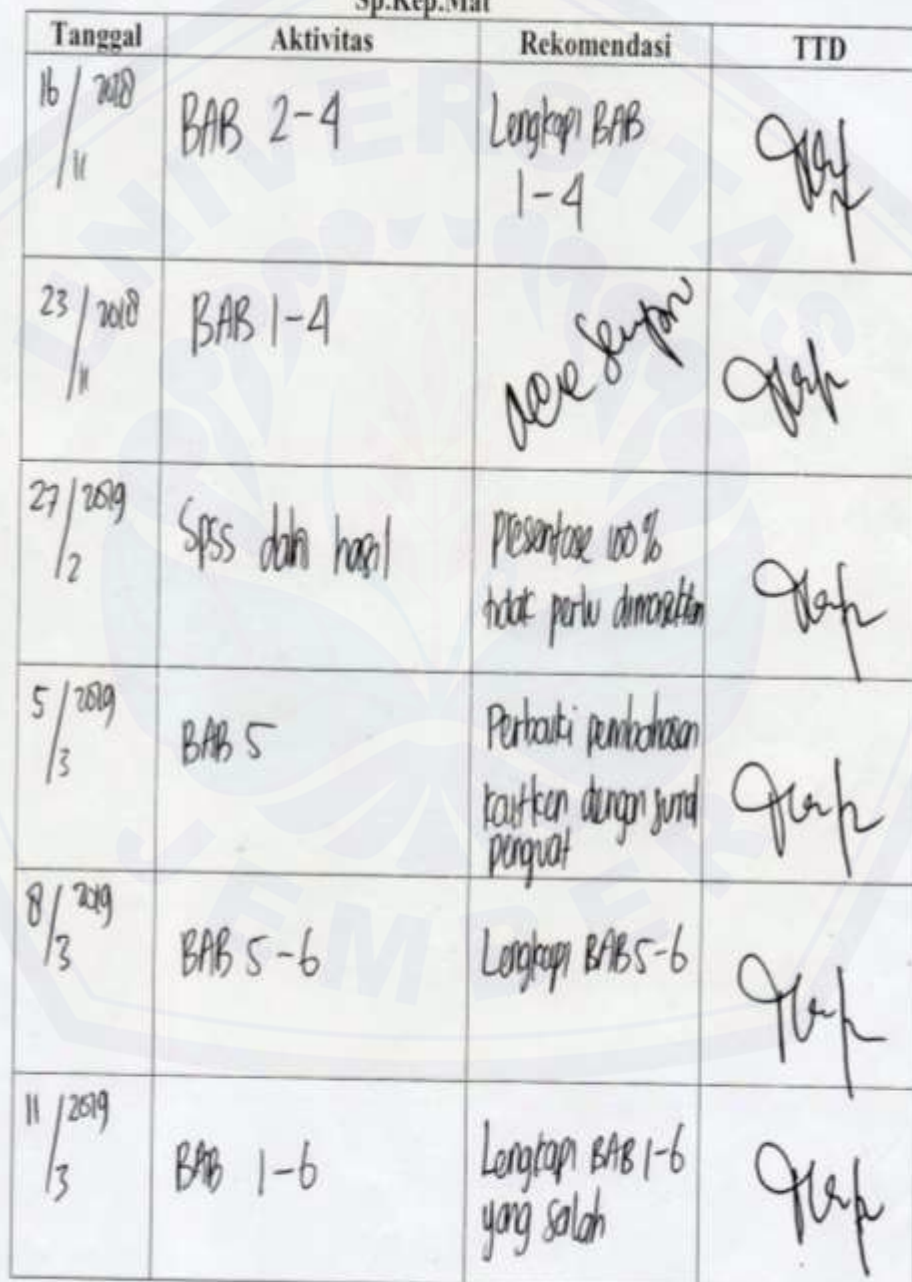 Sp.Kep.Mat
Tanggal Aktivitas Rekomendasi TTD
16/11 2018 BAB 2-4 Lengkapi BAB
1-4
23/11 2018 BAB 1-4 acc sempro
27/2 2019 Spss dan hasil Presentase 100%
tidak perlu dimasukkan
5/3 2019 BAB 5 Perbaiki pembahasan
kaitkan dengan jurnal
penguat
8/3 2019 BAB 5-6 Lengkapi BAB 5-6
11/3 2019 BAB 1-6 Lengkapi BAB 1-6
yang salah
UNIVERSITAS
JEMBER